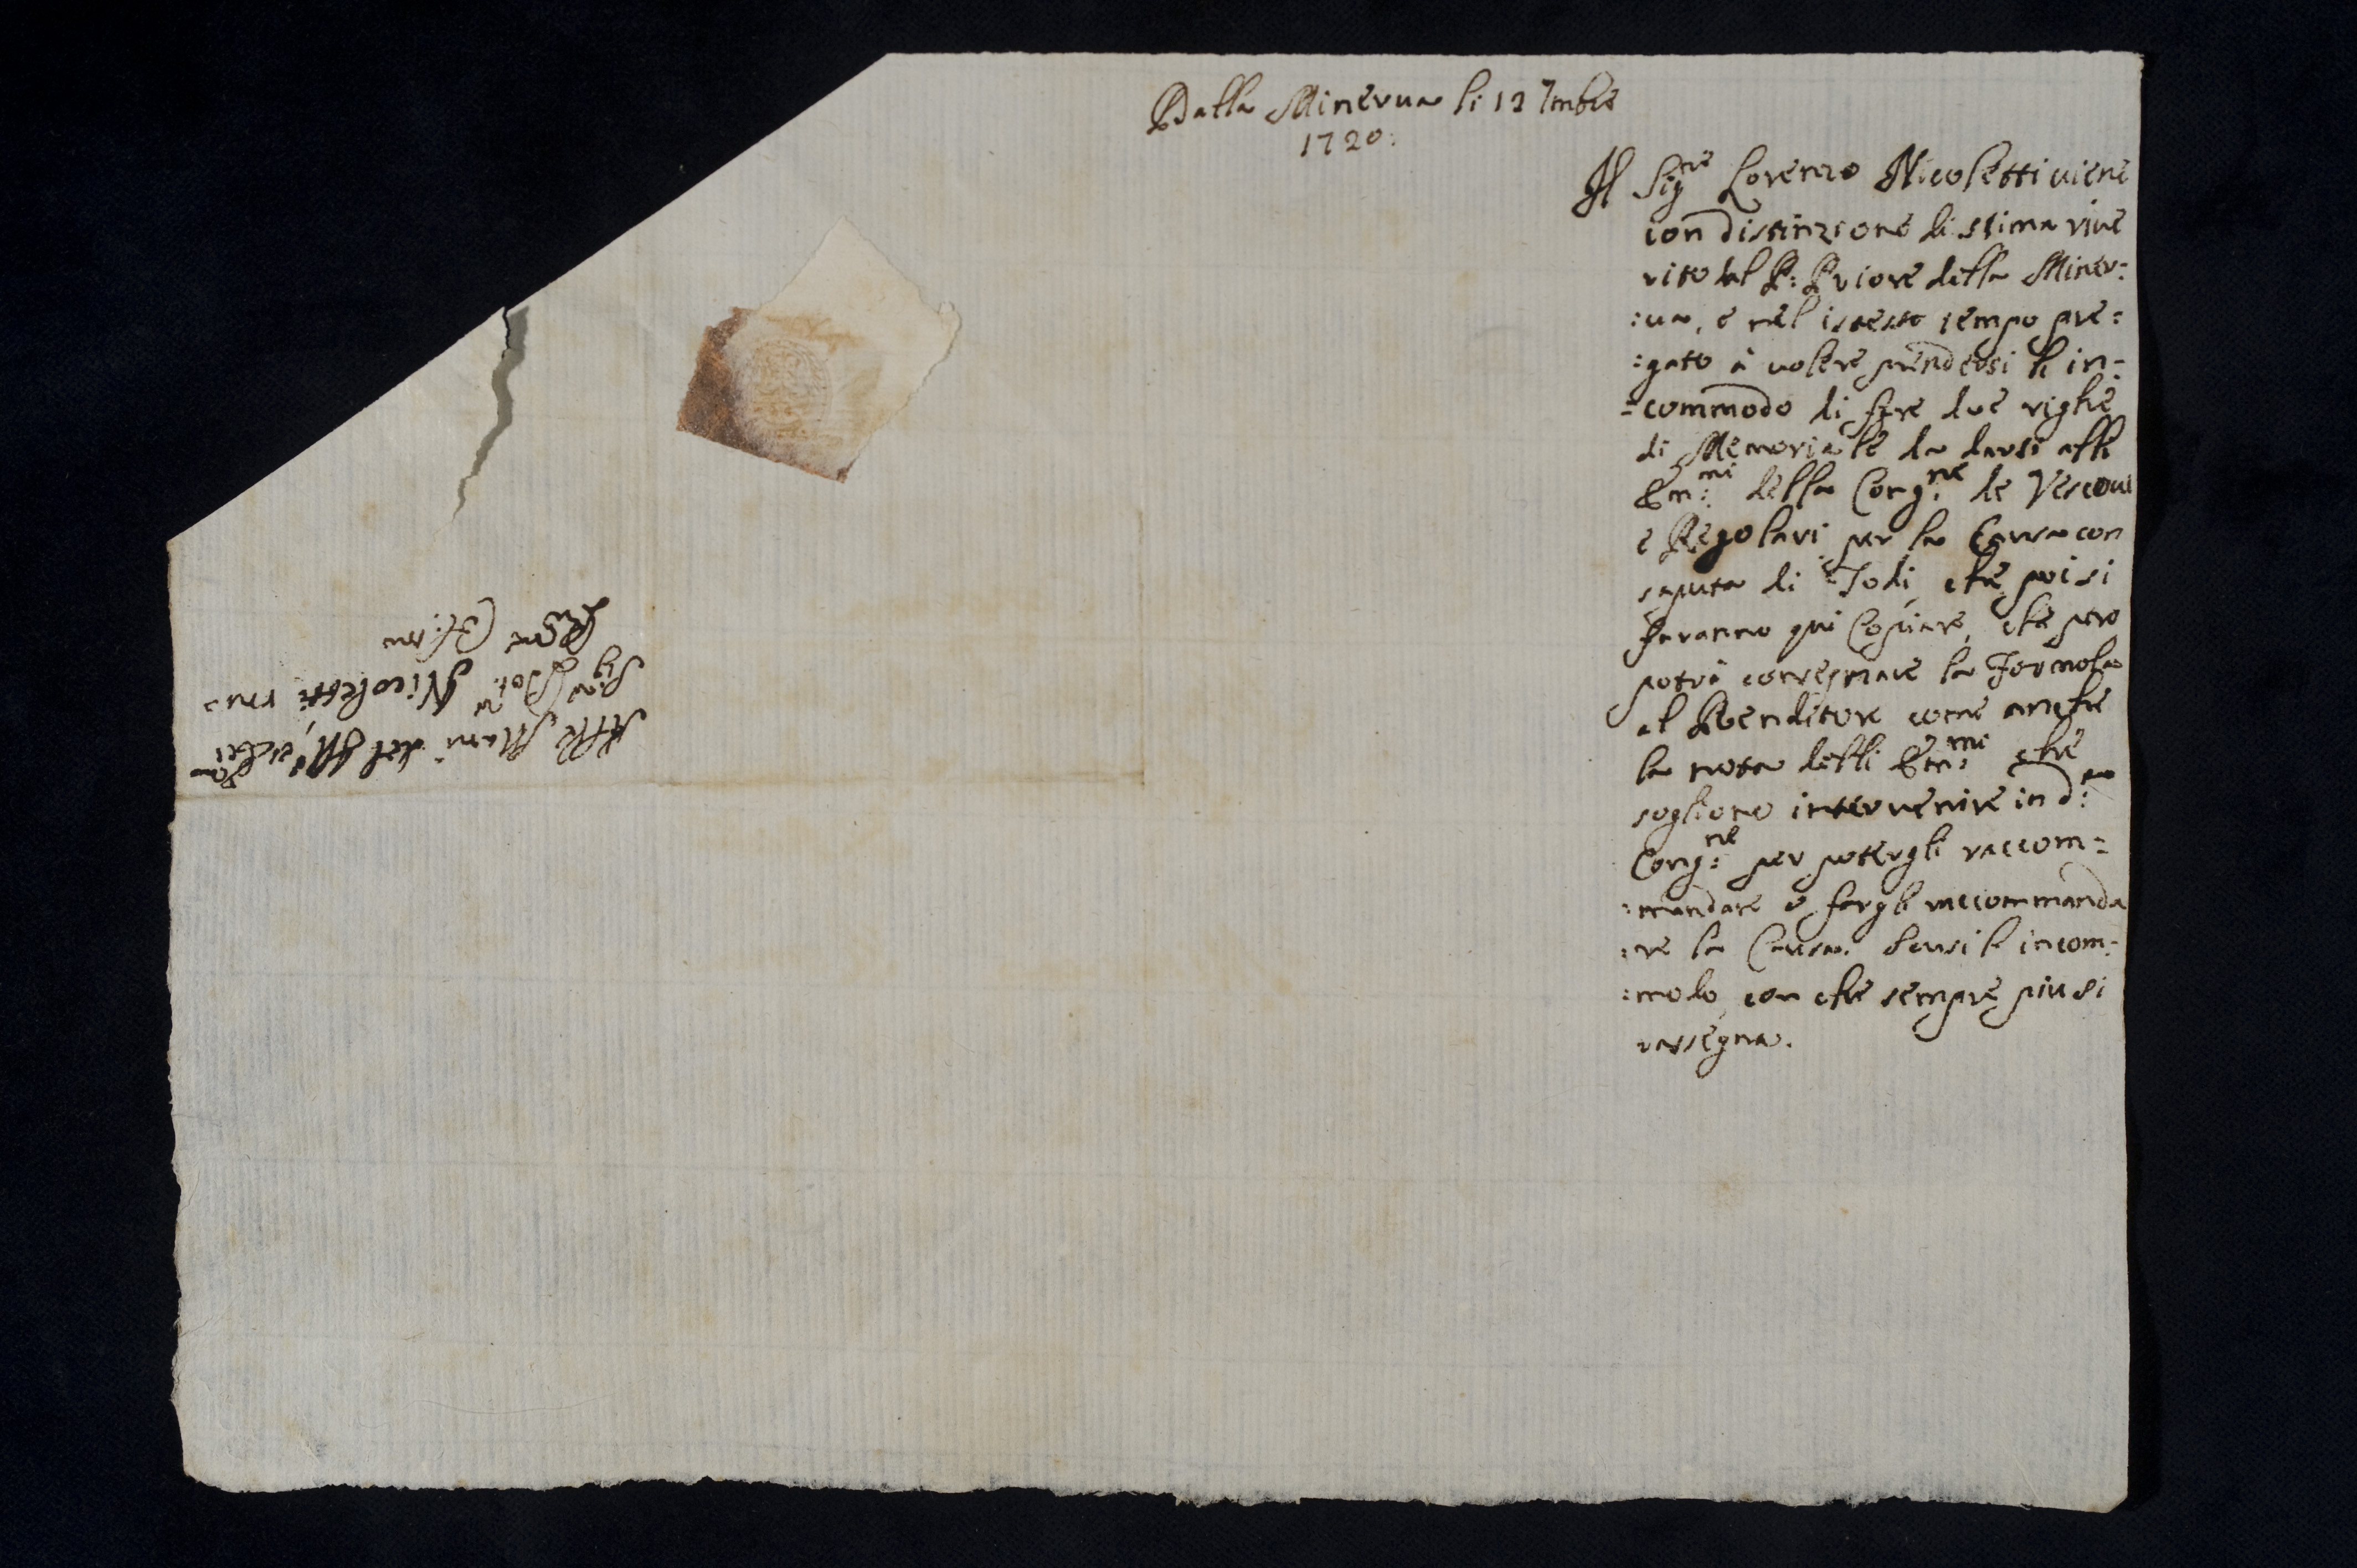 Dalla Minerua li 12 7mbre
1720:
Il Sig.re Lorenzo Nicoletti uiene
con distinzione di stima riue
rito dal P: Priore della Miner:
:ua, e nel istesso tempo pre:
:gato à uolere prendersi li in:
:commodo di fare due righe
di Memoriale da darsi alli
Em:mi della Cong:ne de Vescoui
e Regolari per la Causa con
saputa di Todi, che poi si
faranno qui Copiare, che pero
potrà consegnare la Formola
al Renditore come anche
la nota delli Em:mi che
sogliono interuenire in d:ta
Cong:ne per potergli raccom:
:mandare e fargli raccommanda
:re la Causa. Scusi l'incom:
:modo, con che sempre piu si
rassegna.
Alle Mani del
Sig.re Nicoletti